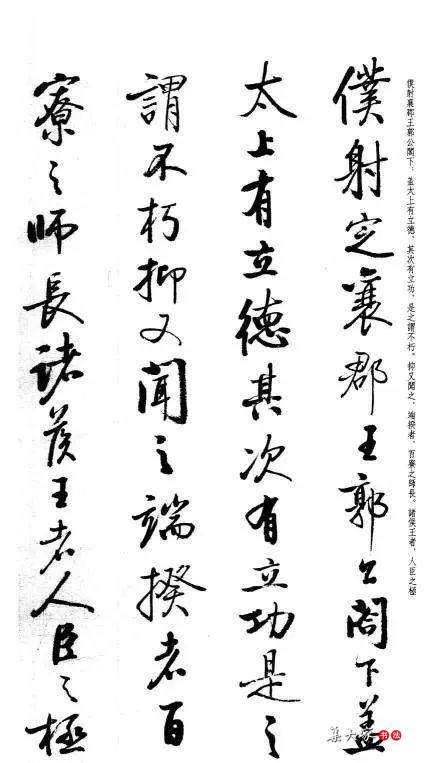 僕射襄郡王郭公閣下，盖太上有立德、其次有立功，是之謂不朽，抑又聞之，端揆者，百寮之師長。諸侯王者，人臣之極
僕射定襄郡王郭公閣下盖
太上有立德其次有立功是之
謂不朽抑又聞之端揆者百
寮之師長諸侯王者人臣之極
书法